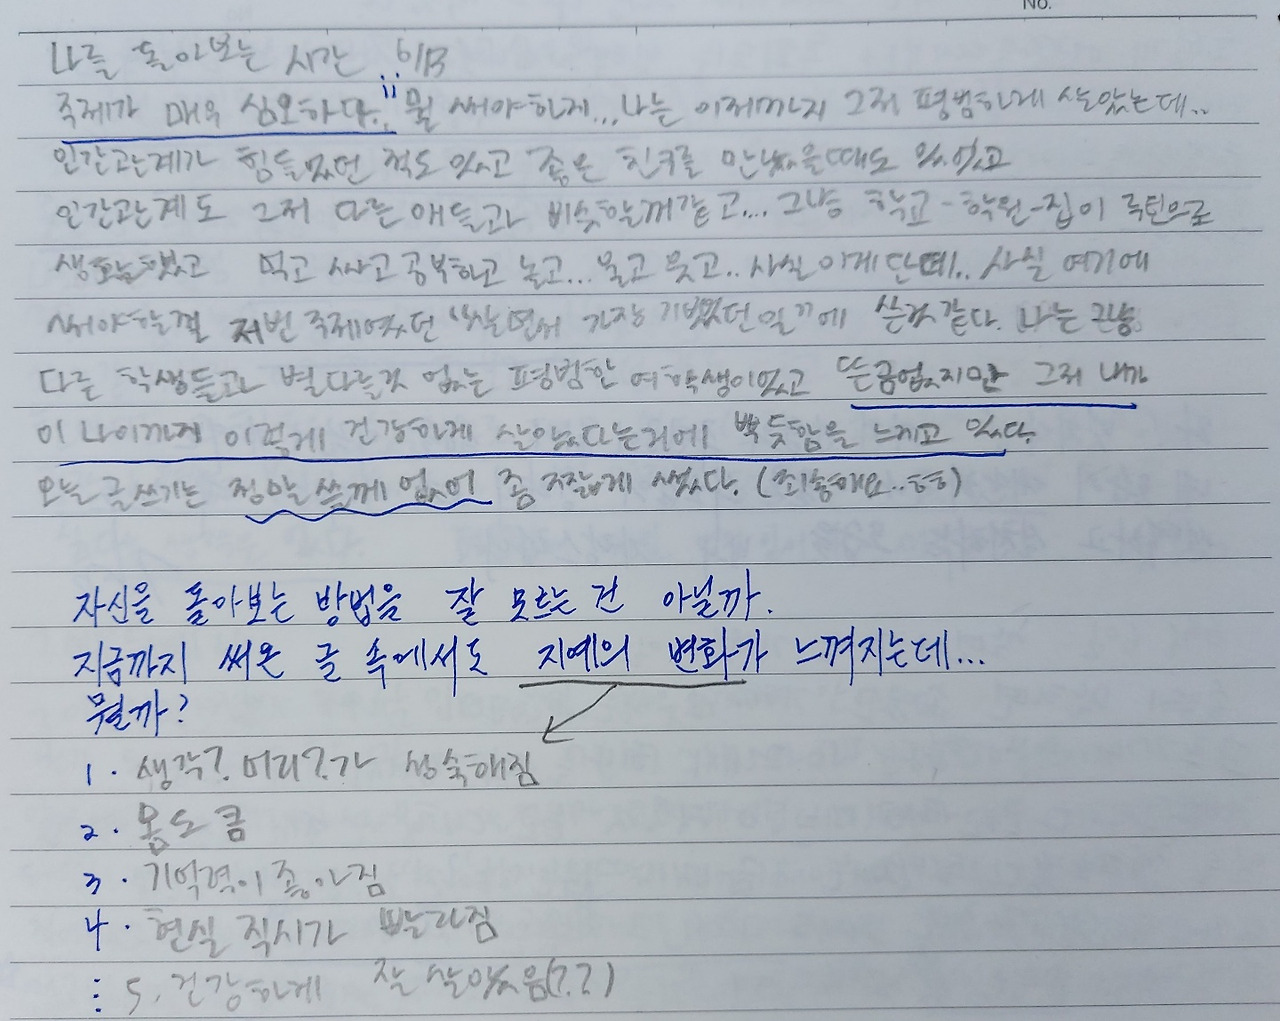 No.
나를 돌아보는 시간 6/13
주제가 매우 심오하다.. 뭘 써야하지... 나는 이제까지 그저 평범하게 살았는데..
인간관계가 힘들었던 적도 있고 좋은 친구를 만났을때도 있었고
인간관계도 그저 다른 애들과 비슷할꺼같고... 그냥 학교-학원-집이 루틴으로
생활했고 먹고 싸고 공부하고 놀고... 울고 웃고.. 사실 이게 단데.. 사실 여기에
써야할걸 저번 주제였던 '살면서 가장 기뻤었던 일'에 쓴것 같다. 나는 그냥
다른 학생들과 별다를것 없는 평범한 여학생이었고 뜬금없지만 그저 내가
이 나이까지 이렇게 건강하게 살았다는거에 뿌듯함을 느끼고 있다.
오늘 글쓰기는 정말 쓸께 없어 좀 짧게 썼다. (죄송해요..ㅎㅎ)
자신을 돌아보는 방법을 잘 모르는 건 아닐까.
지금까지 써온 글 속에서도 지예의 변화가 느껴지는데...
뭘까?
1. 생각?. 머리?.가 성숙해짐
2. 몸도 큼
3. 기억력이 좋아짐
4. 현실 직시가 빨라짐
⋮ 5. 건강하게 잘 살았음(?.?)